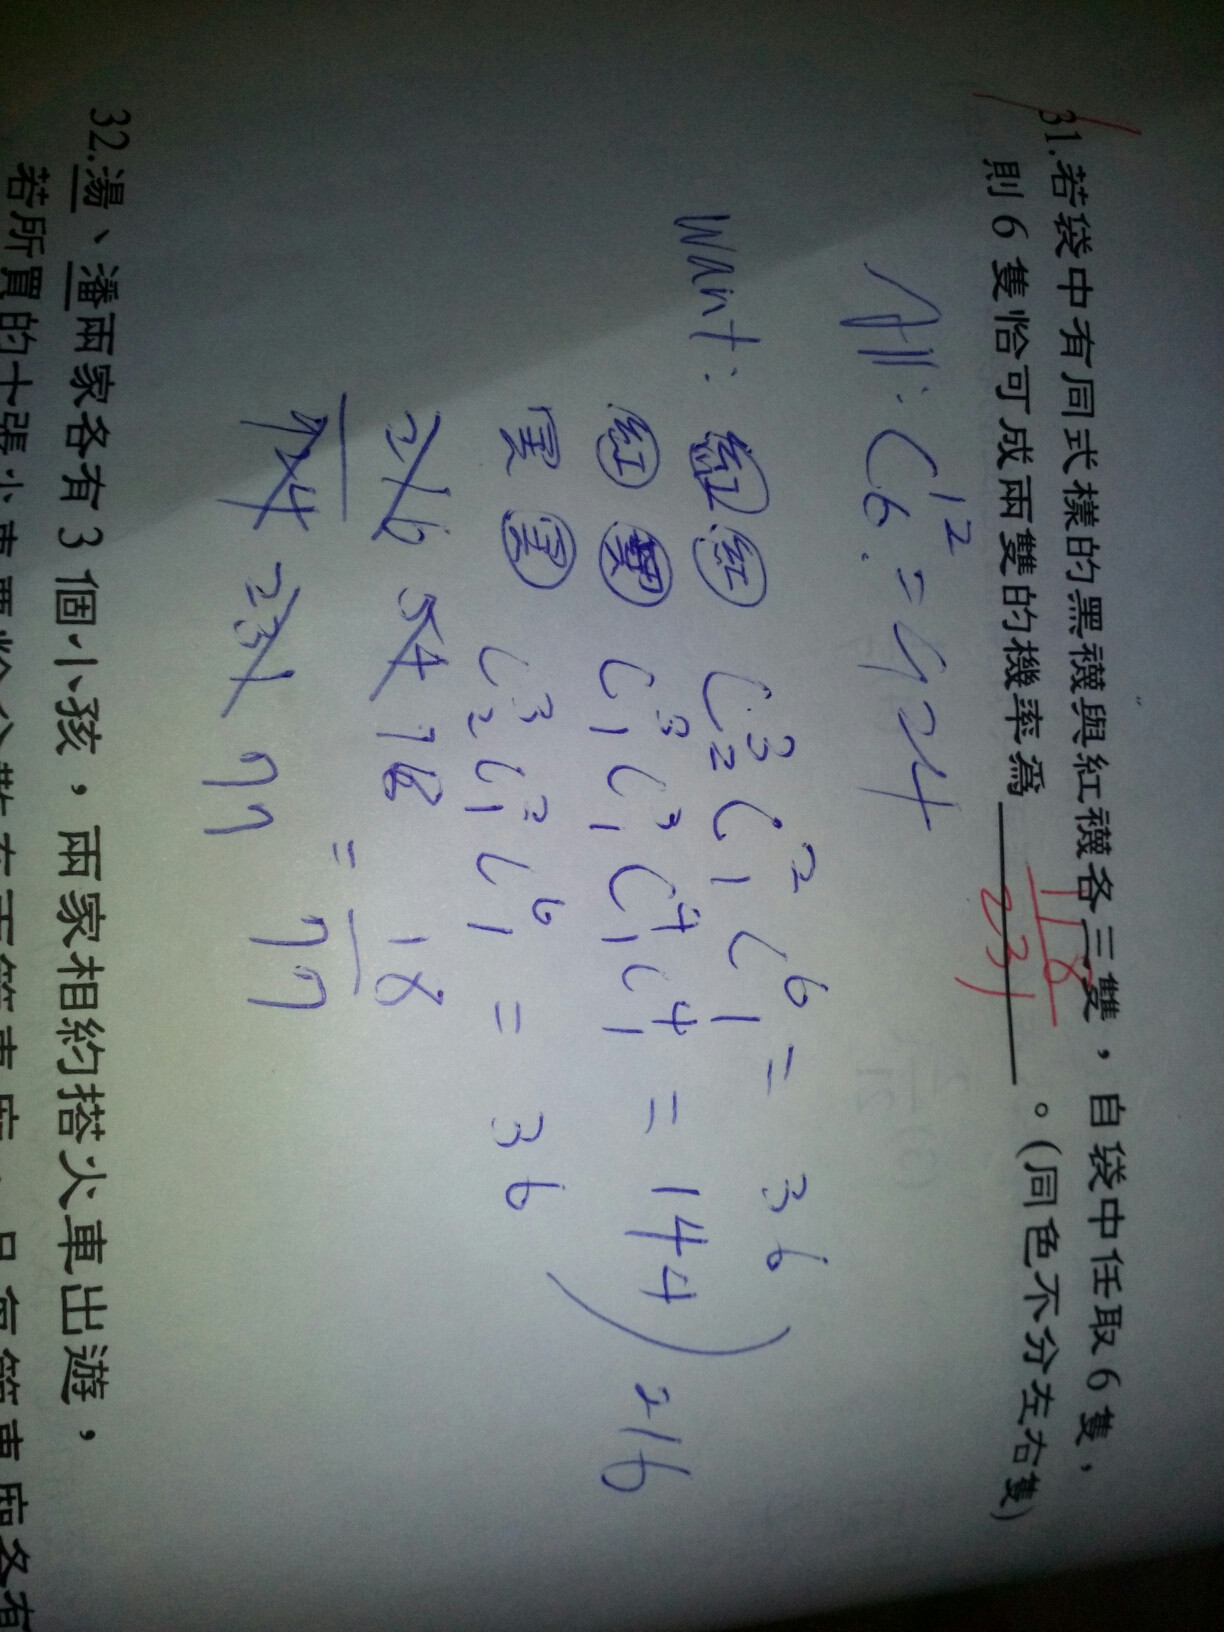 31.若袋中有同式樣的黑襪與紅襪各三雙，自袋中任取6隻，
則6隻恰可成兩雙的機率為 118/231 。(同色不分左右隻)
All: C¹²₆ = 924
Want: 紅 紅 C³₂ C²₁ C⁶₁ = 36
紅 黑 C³₁ C³₁ C⁴₁ C⁴₁ = 144
黑 黑 C³₂ C²₁ C⁶₁ = 36
216
216 54 18
924 231 77
= 18/77
32.湯、潘兩家各有3個小孩，兩家相約搭火車出遊，
若所買的十張火車票